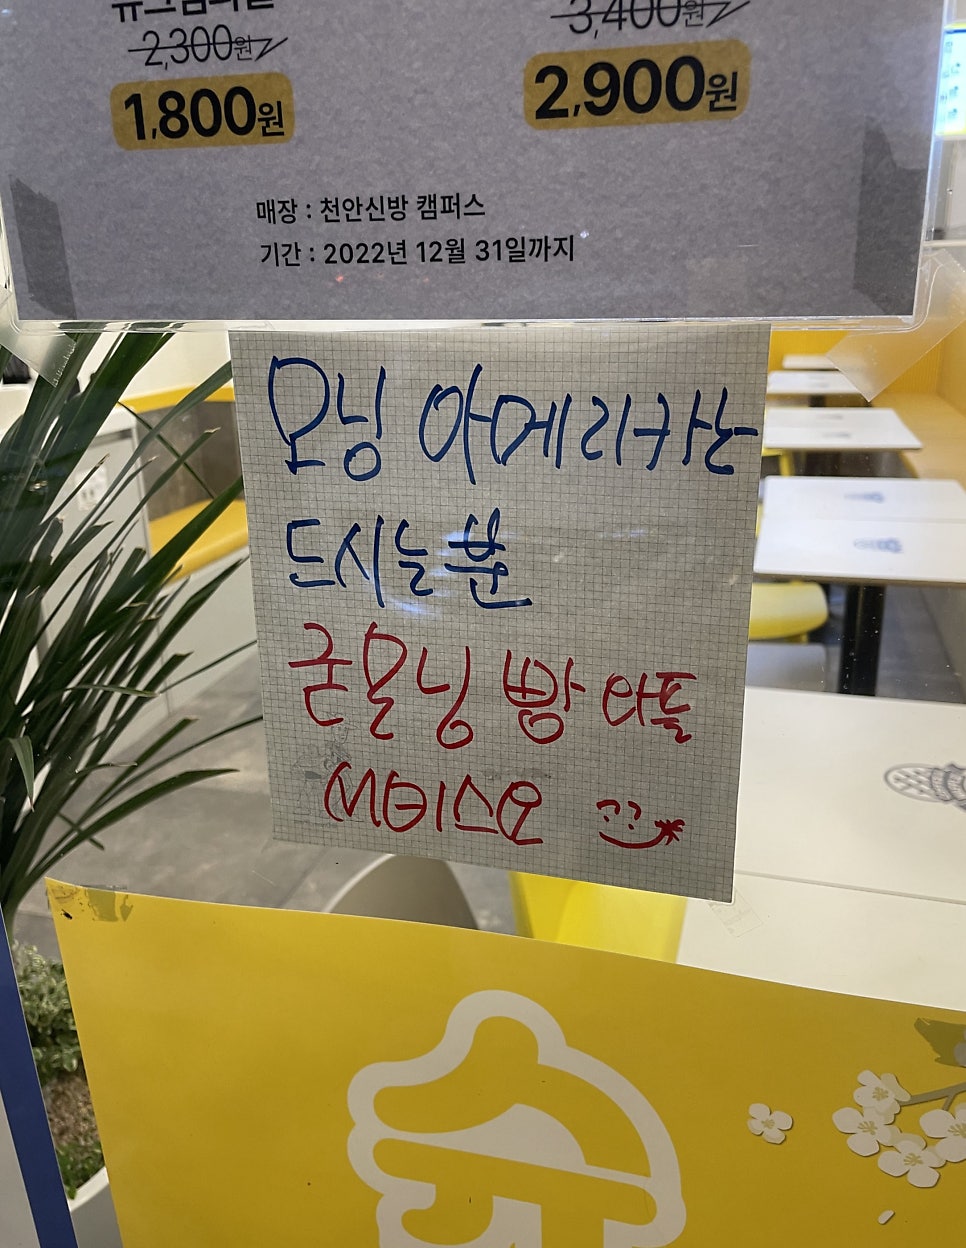 2,300원
3,400원
1,800원
2,900원
매장 : 천안신방 캠퍼스
기간 : 2022년 12월 31일까지
모닝 아메리카는
드시는분
굳모닝 빵 아틀
서비스오 ??